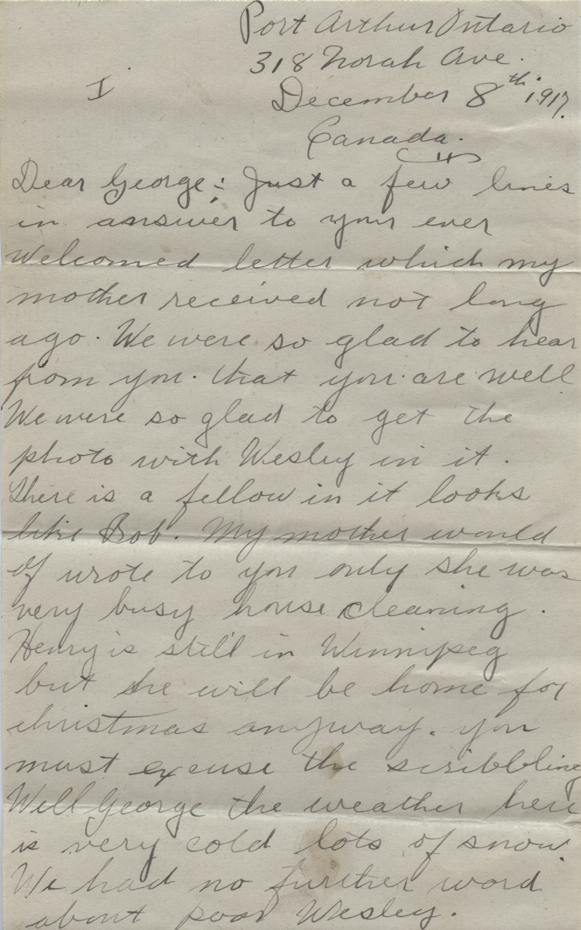 Port Arthur Ontario
318 Norah Ave.
I.
December 8th. 1917.
Canada.
Dear George:- Just a few lines
in answer to your ever
Welcomed letter which my
mother received not long
ago. We were so glad to hear
from you. that you are well
We were so glad to get the
photo with Wesley in it.
There is a fellow in it looks
like Bob. My mother would
of wrote to you only she was
very busy house cleaning.
Henry is still in Winnipeg
but he will be home for
christmas anyway. you
must excuse the scribbling
Well George the weather here
is very cold lots of snow.
We had no further word
about poor Wesley.